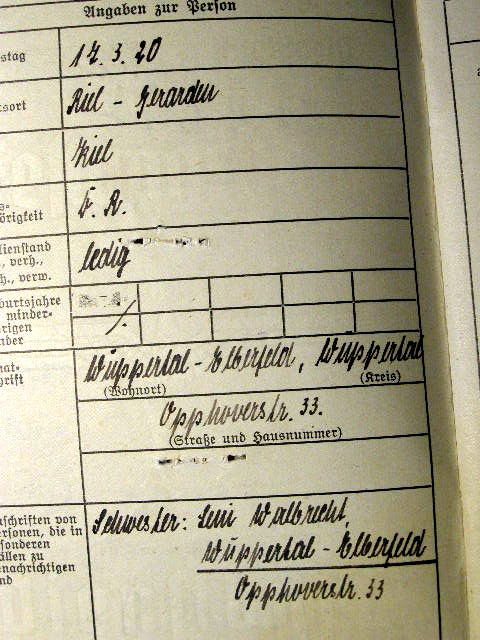 Angaben zur Person
stag
17. 3. 20
sort
Kiel - Gaarden
Kiel
s-
örigkeit
D. R.
lienstand
., verh.,
h., verw.
ledig
burtsjahre
minder-
rigen
nder
/.
at-
hrift
Wuppertal-Elberfeld, Wuppertal
(Wohnort)
(Kreis)
Opphoverstr. 33.
(Straße und Hausnummer)
schriften von
ersonen, die in
sonderen
ällen zu
enachrichtigen
nd
Schwester: Leni Walbrecht,
Wuppertal-Elberfeld
Opphoverstr. 33